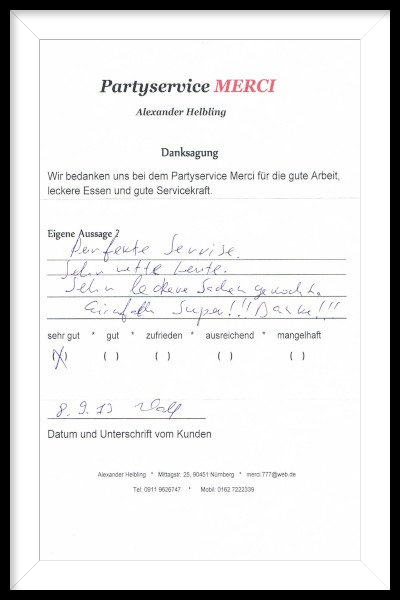 Partyservice MERCI
Alexander Helbling
Danksagung
Wir bedanken uns bei dem Partyservice Merci für die gute Arbeit,
leckere Essen und gute Servicekraft.
Eigene Aussage ?
Perfekte Servise.
Sehr nette Leute.
Sehr leckere Sachen gekocht.
Einfach Super!!! Danke!!!
sehr gut * gut * zufrieden * ausreichend * mangelhaft
(X) ( ) ( ) ( ) ( )
8. 9. 13
Datum und Unterschrift vom Kunden
Alexander Helbling * Mittagstr. 25, 90451 Nürnberg * merci.777@web.de
Tel: 0911 9626747 * Mobil: 0162 7222339